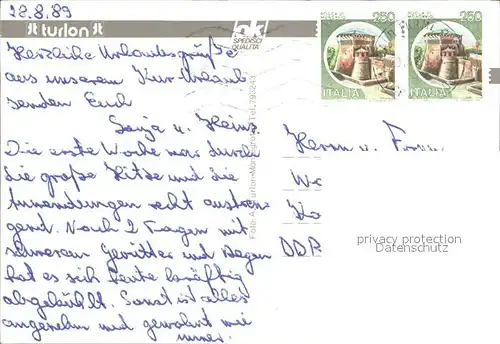 28.8.89
turlon
SPEDISCI
QUALITÀ
250
250
ITALIA
ITALIA
Herzliche Urlaubsgrüße
aus unserem Kur-Urlaub
senden Euch
Sonja u. Heinz
Die erste Woche war durch
die große Hitze und die
Anwendungen recht anstren-
gend. Nach 2 Tagen mit
schweren Gewitter und Regen
hat es sich heute kräftig
abgekühlt. Sonst ist alles
angenehm und gewohnt wie
immer.
Herrn u. Frau
DDR
privacy protection
Datenschutz